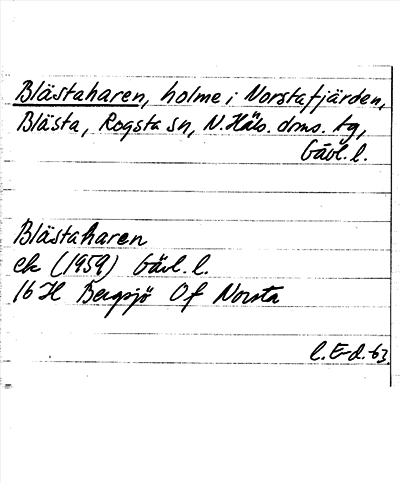 Blästaharen, holme i Norstafjärden,
Blästa, Rogsta sn, N. Häls. doms. tg,
Gävl. l.
Blästaharen
ek (1959) Gävl. l.
16 H Bergsjö Of Norsta
l. E-d. 63